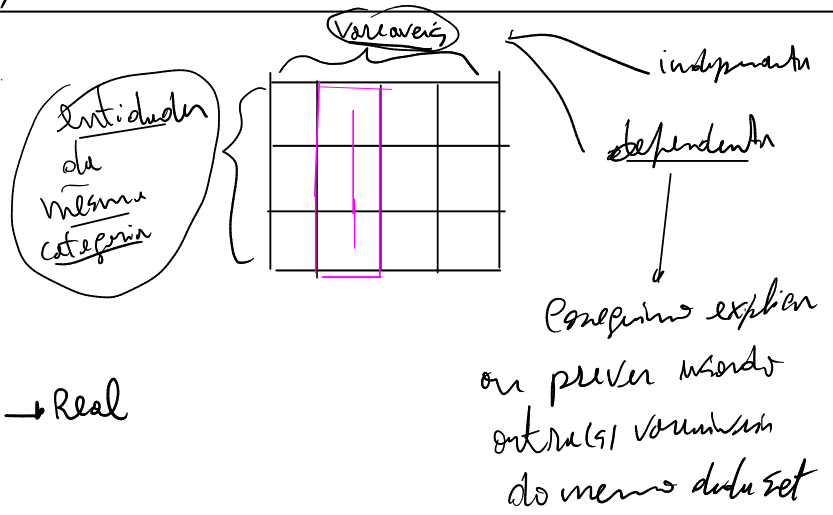 Variáveis
independente
dependente
entidades
da
mesma
categoria
Conseguimos explicar
ou prever usando
outra(s) variáveis
do mesmo dataset
→ Real